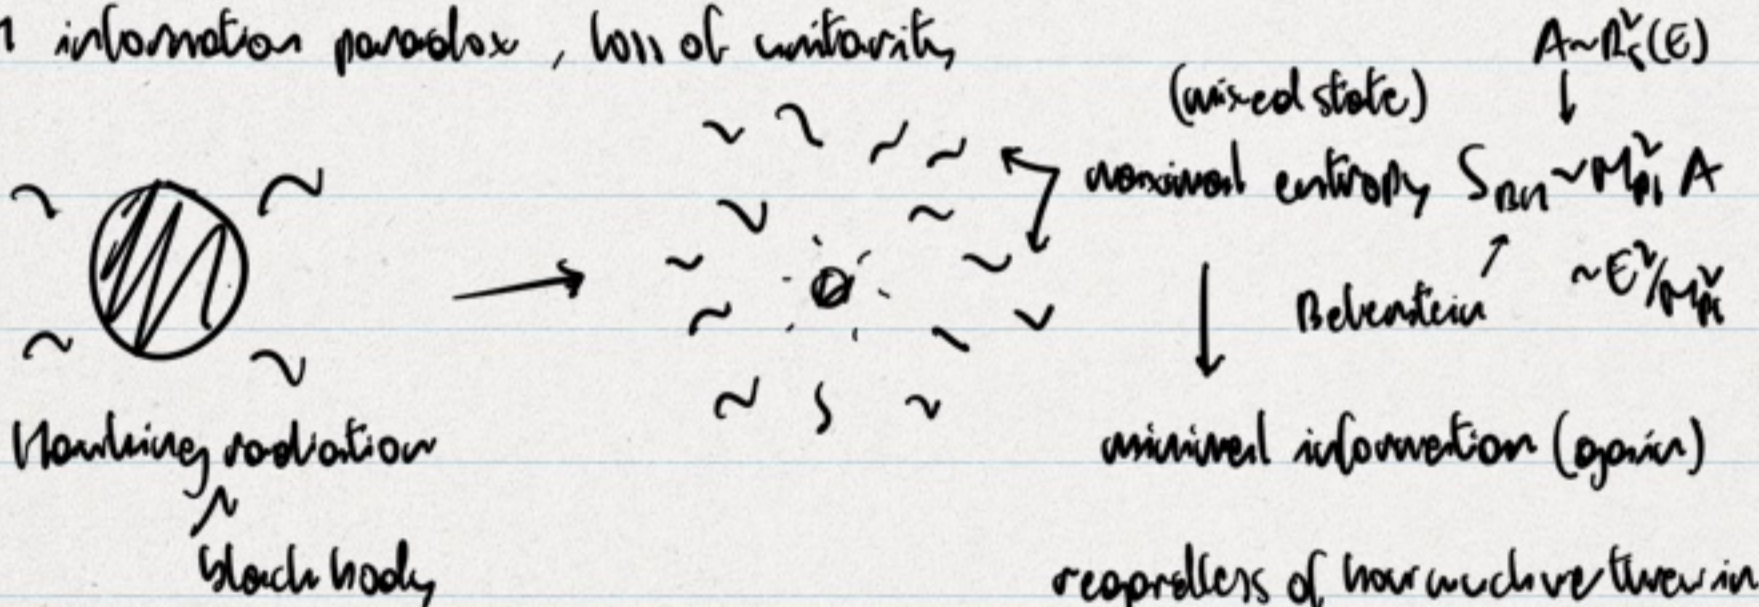 information paradox, loss of unitarity
A~R_S^2(E)
↓
(mixed state)
maximal entropy S_BH ~ M_Pl^2 A
~E^2/M_Pl^2
Bekenstein
Hawking radiation
minimal information (again)
black body
regardless of how much we threw in